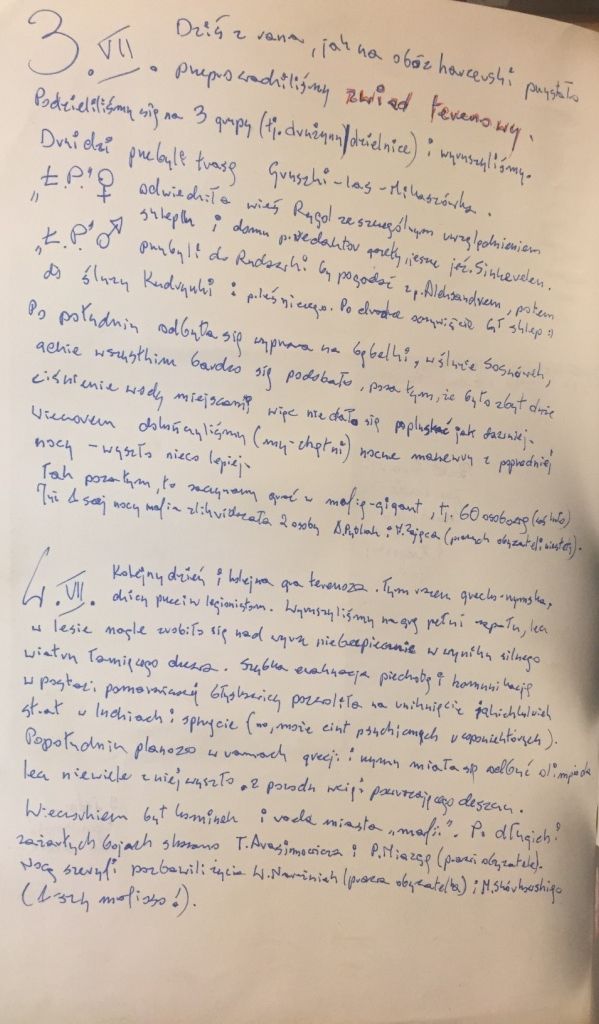 3.VII. Dziś z rana, jak na obóz harcerski przystało
przeprowadziliśmy zwiad terenowy.
Podzieliliśmy się na 3 grupy (tj. drużyny/dzielnice) i wyruszyliśmy.
Druidzi przebyli trasę Gruszki-las-Mikaszówka.
"Ł.P." ♀ odwiedziła wieś Rygol ze szczególnym uwzględnieniem
sklepu i domu p. redaktor gazety
"Ł.P." ♂ przybyli do Rudawki by pogadać z p. Aleksandrem, potem
do śluzy Kudrynki i p. leśniczego. Po drodze oczywiście był sklep :)
Po południu odbyła się wyprawa na bąbelki, w śluzie Sosnówek,
gdzie wszystkim bardzo się podobało, poza tym, że było zbyt duże
ciśnienie wody miejscami więc nie dało się popluskać jak dawniej.
Wieczorem dokończyliśmy (my-chętni) nocne manewry z poprzedniej
nocy - wyszło nieco lepiej.
Tak poza tym, to zaczynamy grać w mafię-gigant, tj. 60 osobową (coś koło)
Już 1-szej nocy mafia zlikwidowała 2 osoby i M. Zająca (prawych obywateli miasta).
4.VII. Kolejny dzień i kolejna gra terenowa. Tym razem grecko-rzymska,
dzicy przeciw legionistom. Wyruszyliśmy na grę pełni zapału, lecz
w lesie nagle zrobiło się nad wyraz niebezpiecznie w wyniku silnego
wiatru łamiącego drzewa. Szybka ewakuacja piechotą i komunikacją
w postaci pomarańczowej błyskawicy pozwoliła na uniknięcie jakichkolwiek
strat w ludziach i sprzęcie (no, może ciut psychicznych u co poniektórych).
Popołudniu planowo w ramach grecji i rzymu miała się odbyć olimpiada
lecz niewiele z niej wyszło z powodu wciąż powracającego deszczu.
Wieczorkiem był kominek i rada miasta „mafii”. Po długich i
zażartych bojach skazano T. Awasimowicza i P. Miazgę (prawi obywatele).
Nocą szeryfi pozbawili życia W. (prawa obywatelka) i M. Skórkowskiego
(1-szy mafioso!).